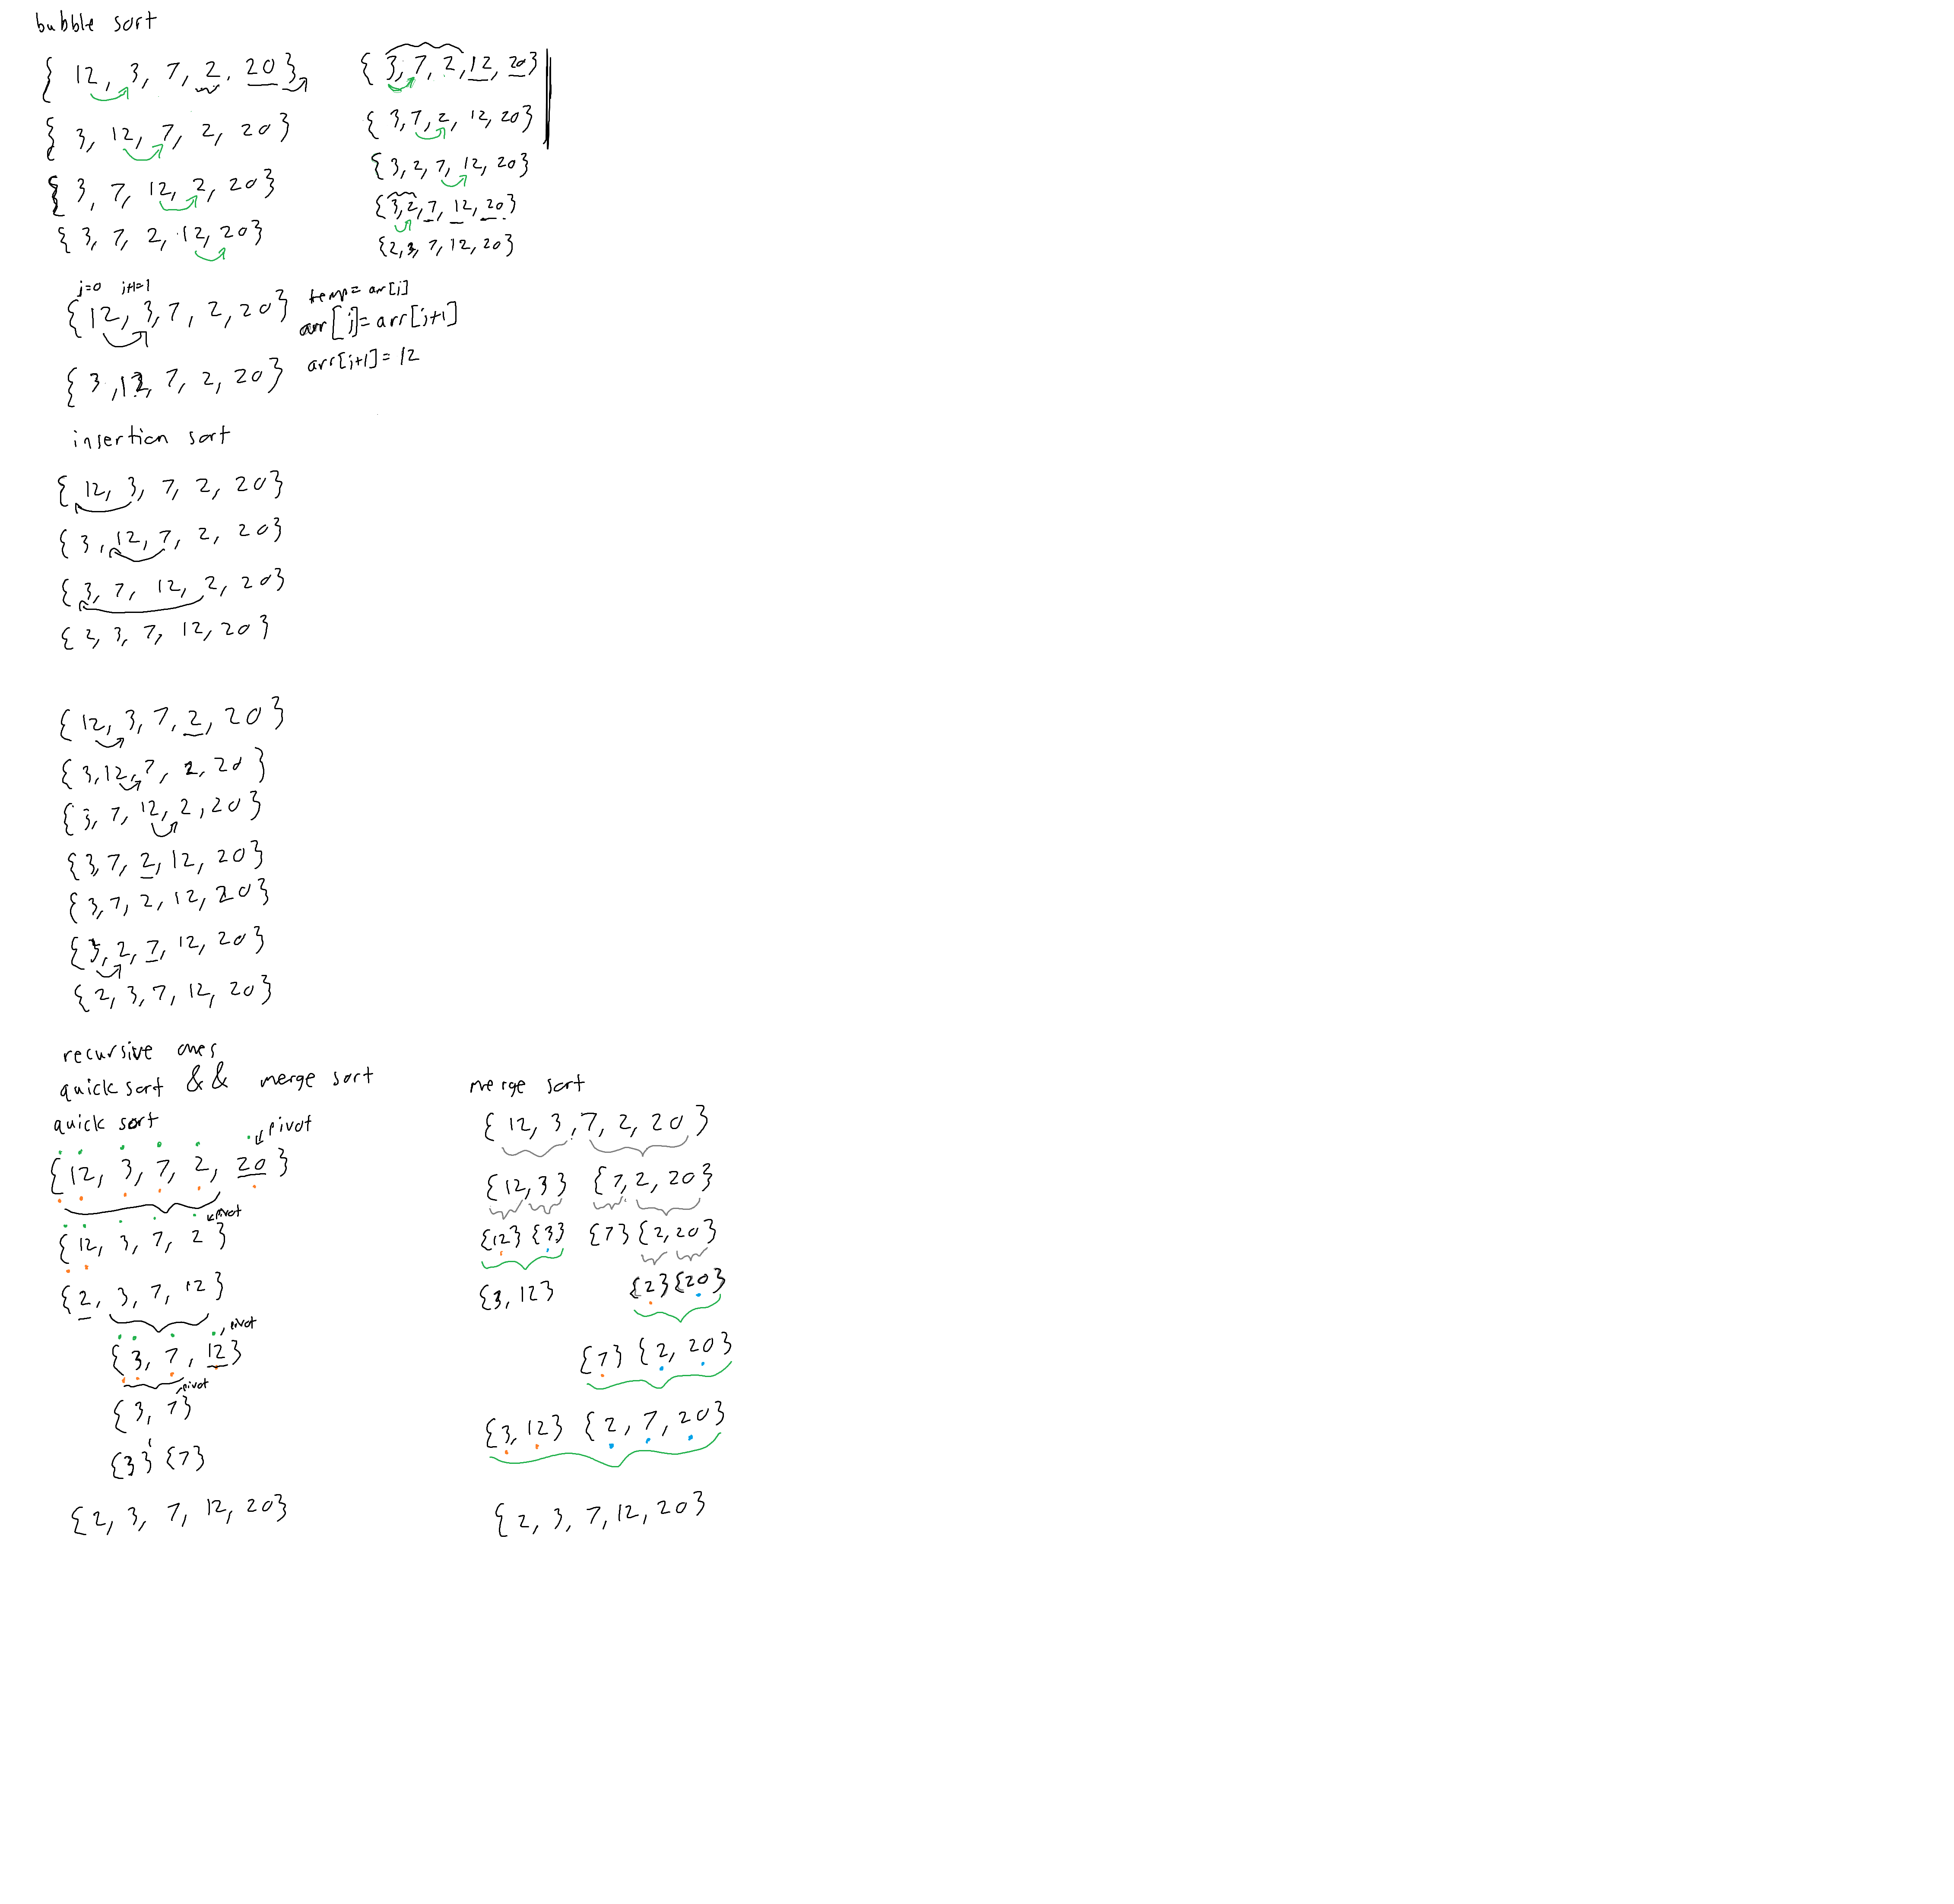 bubble sort
{ 12, 3, 7, 2, 20 }
{ 3, 12, 7, 2, 20 }
{ 3, 7, 12, 2, 20 }
{ 3, 7, 2, 12, 20 }
{ 3, 7, 2, 12, 20 }
{ 3, 7, 2, 12, 20 }
{ 3, 2, 7, 12, 20 }
{ 3, 2, 7, 12, 20 }
{ 2, 3, 7, 12, 20 }
j=0 j+1=1
{ 12, 3, 7, 2, 20 }
temp = arr[j]
arr[j] = arr[j+1]
arr[j+1] = 12
{ 3, 12, 7, 2, 20 }
insertion sort
{ 12, 3, 7, 2, 20 }
{ 3, 12, 7, 2, 20 }
{ 3, 7, 12, 2, 20 }
{ 2, 3, 7, 12, 20 }
{ 12, 3, 7, 2, 20 }
{ 3, 12, 7, 2, 20 }
{ 3, 7, 12, 2, 20 }
{ 3, 7, 2, 12, 20 }
{ 3, 7, 2, 12, 20 }
{ 3, 2, 7, 12, 20 }
{ 2, 3, 7, 12, 20 }
recursive ones
quick sort && merge sort
quick sort
pivot
{ 12, 3, 7, 2, 20 }
pivot
{ 12, 3, 7, 2 }
{ 2, 3, 7, 12 }
pivot
{ 3, 7, 12 }
pivot
{ 3, 7 }
{3} {7}
{ 2, 3, 7, 12, 20 }
merge sort
{ 12, 3, 7, 2, 20 }
{ 12, 3 } { 7, 2, 20 }
{12} {3} {7} { 2, 20 }
{ 3, 12 } {2} {20}
{7} { 2, 20 }
{ 3, 12 } { 2, 7, 20 }
{ 2, 3, 7, 12, 20 }